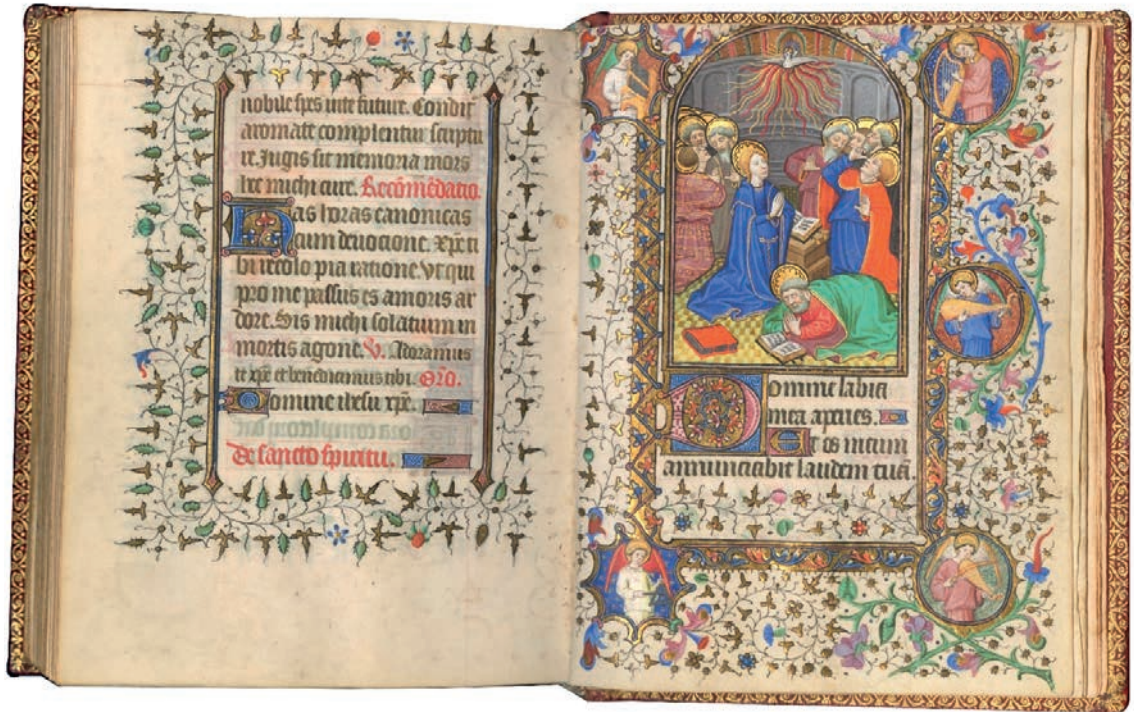 nobile spes vite future. Condit
aromate complentur scriptu
re. Jugis sit memoria mors
hec michi cure. Recõmẽdatio.
Has horas canonicas
cum devocione. xp̃e ti
bi recolo pia ratione. Vt qui
pro me passus es amoris ar
dore. Sis michi solatium in
mortis agone. V. Adoramus
te xp̃e et benedicimus tibi. Orõ.
Domine ihesu xp̃e.
De sancto spiritu.
Domine labia
mea aperies.
Et os meum
annunciabit laudem tuã